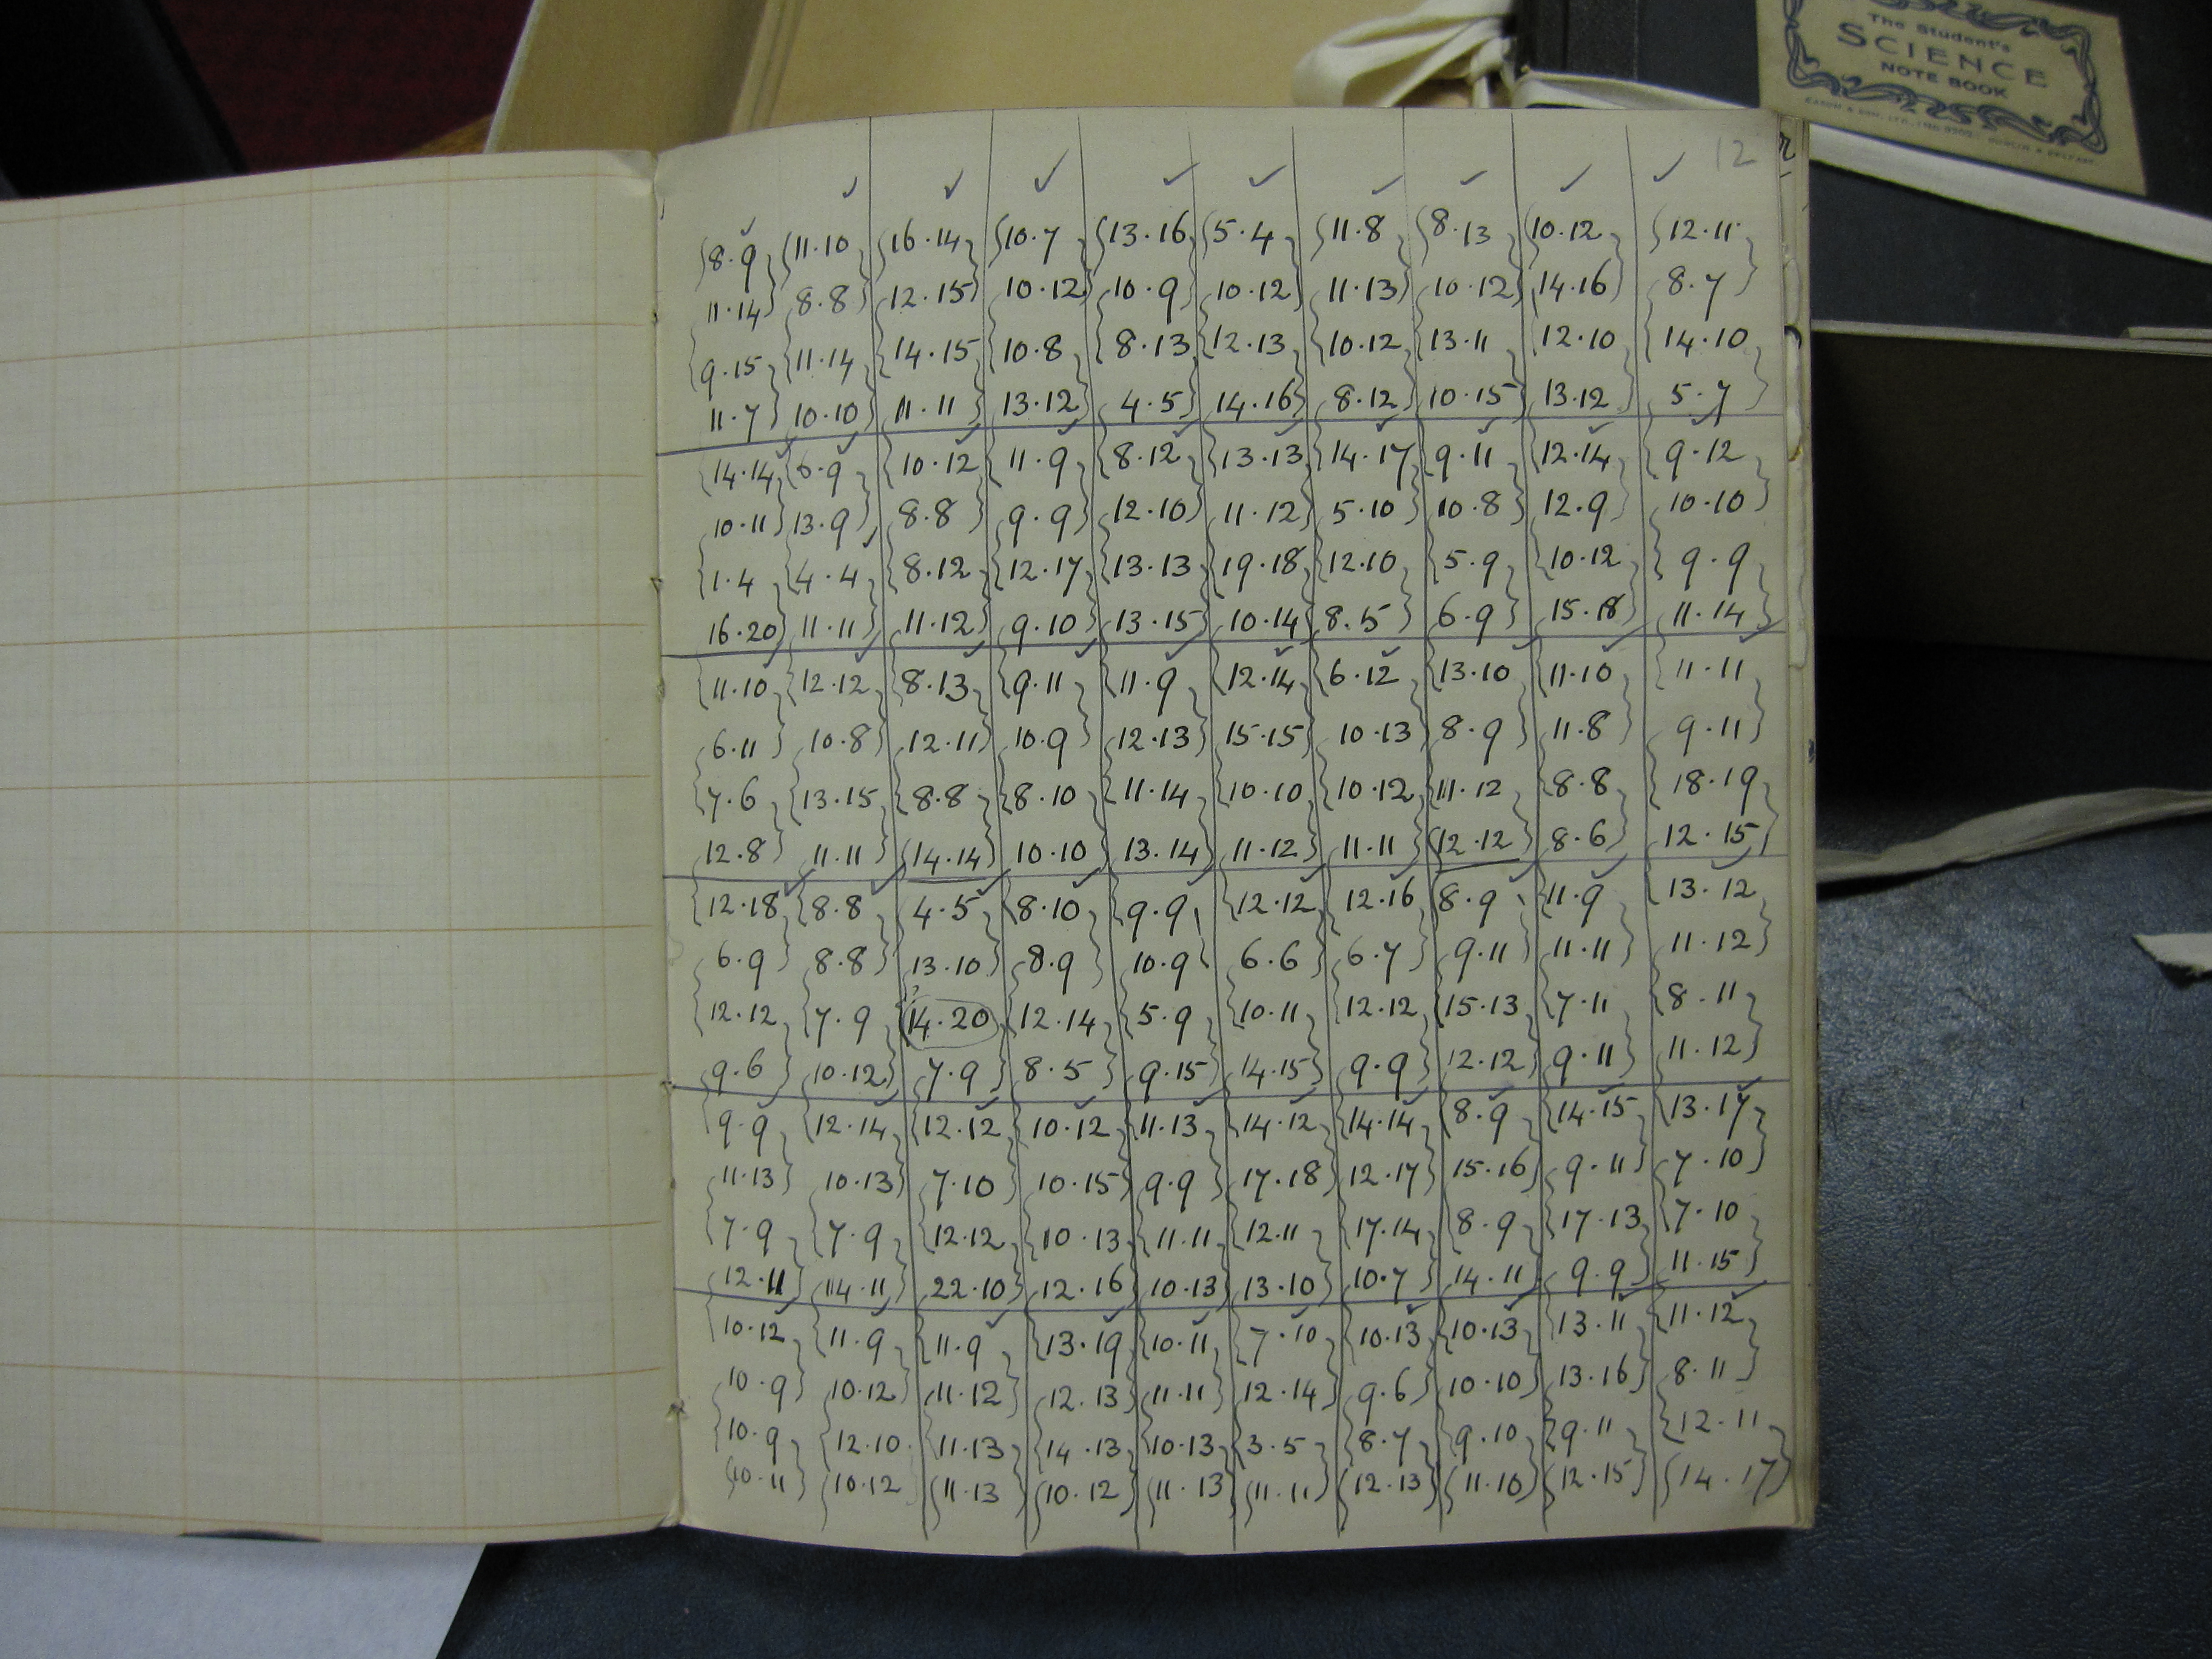 The Student's
SCIENCE
NOTE BOOK
12
8.9 11.10 16.14 10.7 13.16 5.4 11.8 8.13 10.12 12.11
11.14 8.8 12.15 10.12 10.9 10.12 11.13 10.12 14.16 8.7
9.15 11.14 14.15 10.8 8.13 12.13 10.12 13.11 12.10 14.10
11.7 10.10 11.11 13.12 4.5 14.16 8.12 10.15 13.12 5.7
14.14 6.9 10.12 11.9 8.12 13.13 14.17 9.11 12.14 9.12
10.11 13.9 8.8 9.9 12.10 11.12 5.10 10.8 12.9 10.10
1.4 4.4 8.12 12.17 13.13 19.18 12.10 5.9 10.12 9.9
16.20 11.11 11.12 9.10 13.15 10.14 8.5 6.9 15.18 11.14
11.10 12.12 8.13 9.11 11.9 12.14 6.12 13.10 11.10 11.11
6.11 10.8 12.11 10.9 12.13 15.15 10.13 8.9 11.8 9.11
7.6 13.15 8.8 8.10 11.14 10.10 10.12 11.12 8.8 18.19
12.8 11.11 14.14 10.10 13.14 11.12 11.11 12.12 8.6 12.15
12.18 8.8 4.5 8.10 9.9 12.12 12.16 8.9 11.9 13.12
6.9 8.8 13.10 8.9 10.9 6.6 6.7 9.11 11.11 11.12
12.12 7.9 14.20 12.14 5.9 10.11 12.12 15.13 7.11 8.11
9.6 10.12 7.9 8.5 9.15 14.15 9.9 12.12 9.11 11.12
9.9 12.14 12.12 10.12 11.13 14.12 14.14 8.9 14.15 13.17
11.13 10.13 7.10 10.15 9.9 17.18 12.17 15.16 9.11 7.10
7.9 7.9 12.12 10.13 11.11 12.11 17.14 8.9 17.13 7.10
12.11 14.11 22.10 12.16 10.13 13.10 10.7 14.11 9.9 11.15
10.12 11.9 11.9 13.19 10.11 7.10 10.13 10.13 13.11 11.12
10.9 10.12 11.12 12.13 11.11 12.14 9.6 10.10 13.16 8.11
10.9 12.10 11.13 14.13 10.13 3.5 8.7 9.10 9.11 12.11
10.11 10.12 11.13 10.12 11.13 11.11 12.13 11.10 12.15 14.17